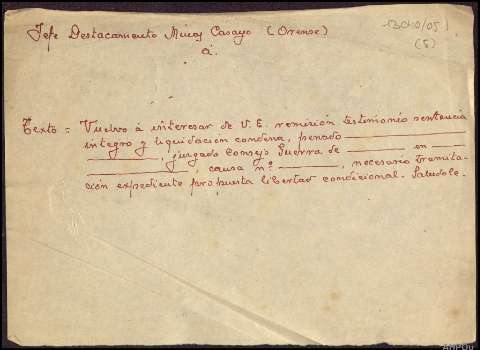 Jefe Destacamento Minas Casayo (Orense)
á.
(5)
Texto = Vuelvo á interesar de V.E. remisión testimonio sentencia
integro y liquidación condena, penado ____________
____________, juzgado Consejo Guerra de __________ en ______
____________, causa nº. ____________, necesario tramita-
ción expediente propuesta libertad condicional. Saludole.